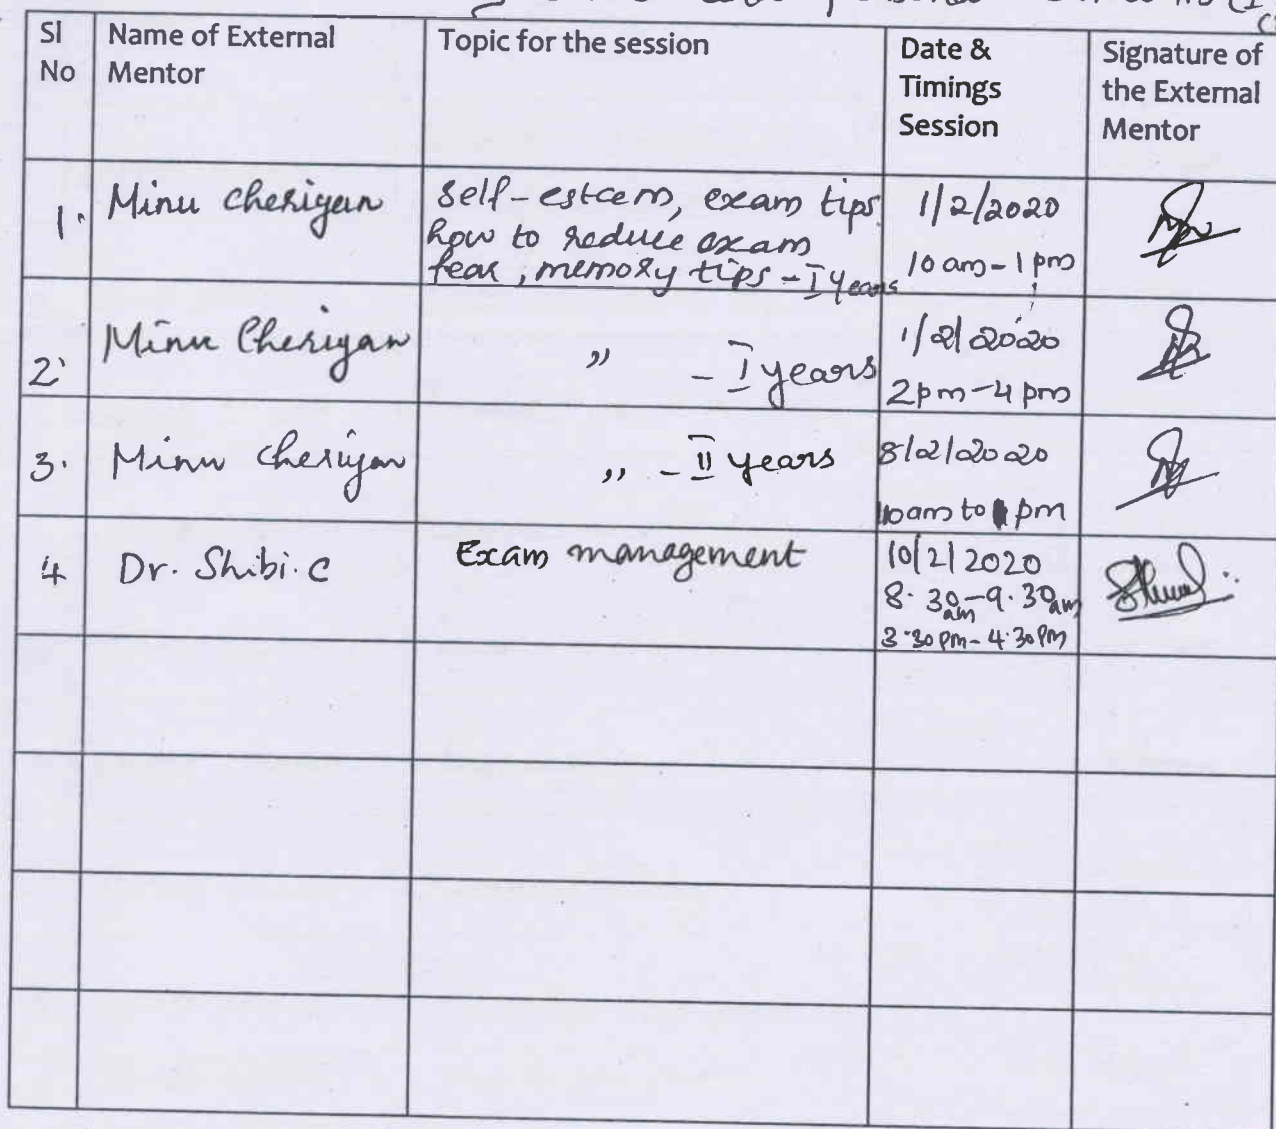 Sl No
Name of External Mentor
Topic for the session
Date & Timings Session
Signature of the External Mentor
1. Minu Cheriyan
Self-esteem, exam tips
how to reduce exam
fear, memory tips - I years
1/2/2020
10 am - 1 pm
2. Minu Cheriyan
" - I years
1/2/2020
2 pm - 4 pm
3. Minu Cheriyan
" - II years
8/2/2020
10 am to pm
4 Dr. Shibi. C
Exam management
10/2/2020
8.30 am - 9.30 am
3.30 pm - 4.30 pm